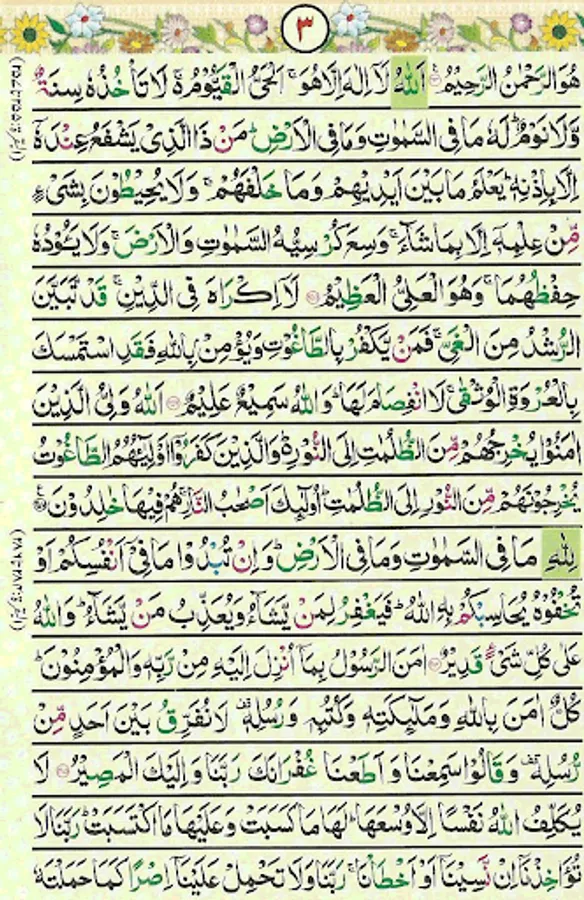 ٣
هُوَ الرَّحْمٰنُ الرَّحِيْمُ اَللّٰهُ لَاۤ اِلٰهَ اِلَّا هُوَ ۚ اَلْحَيُّ الْقَيُّوْمُ ۚ لَا تَاْخُذُهٗ سِنَةٌ
وَّلَا نَوْمٌ ؕ لَهٗ مَا فِى السَّمٰوٰتِ وَمَا فِى الْاَرْضِ ؕ مَنْ ذَا الَّذِىْ يَشْفَعُ عِنْدَهٗۤ
اِلَّا بِاِذْنِهٖ ؕ يَعْلَمُ مَا بَيْنَ اَيْدِيْهِمْ وَمَا خَلْفَهُمْ ۚ وَلَا يُحِيْطُوْنَ بِشَىْءٍ
مِّنْ عِلْمِهٖۤ اِلَّا بِمَا شَآءَ ۚ وَسِعَ كُرْسِيُّهُ السَّمٰوٰتِ وَالْاَرْضَ ۚ وَلَا يَـُٔوْدُهٗ
حِفْظُهُمَا ۚ وَهُوَ الْعَلِىُّ الْعَظِيْمُ لَاۤ اِكْرَاهَ فِى الدِّيْنِ ۚ قَدْ تَّبَيَّنَ
الرُّشْدُ مِنَ الْغَىِّ ۚ فَمَنْ يَّكْفُرْ بِالطَّاغُوْتِ وَيُؤْمِنْۢ بِاللّٰهِ فَقَدِ اسْتَمْسَكَ
بِالْعُرْوَةِ الْوُثْقٰى ۚ لَا انْفِصَامَ لَهَا ؕ وَاللّٰهُ سَمِيْعٌ عَلِيْمٌ اَللّٰهُ وَلِىُّ الَّذِيْنَ
اٰمَنُوْا يُخْرِجُهُمْ مِّنَ الظُّلُمٰتِ اِلَى النُّوْرِ ۬ؕ وَالَّذِيْنَ كَفَرُوْۤا اَوْلِيٰٓـُٔهُمُ الطَّاغُوْتُ
يُخْرِجُوْنَهُمْ مِّنَ النُّوْرِ اِلَى الظُّلُمٰتِ ؕ اُولٰٓئِكَ اَصْحٰبُ النَّارِ ۚ هُمْ فِيْهَا خٰلِدُوْنَ
لِلّٰهِ مَا فِى السَّمٰوٰتِ وَمَا فِى الْاَرْضِ ؕ وَاِنْ تُبْدُوْا مَا فِىْۤ اَنْفُسِكُمْ اَوْ
تُخْفُوْهُ يُحَاسِبْكُمْ بِهِ اللّٰهُ ؕ فَيَغْفِرُ لِمَنْ يَّشَآءُ وَيُعَذِّبُ مَنْ يَّشَآءُ ؕ وَاللّٰهُ
عَلٰى كُلِّ شَىْءٍ قَدِيْرٌ اٰمَنَ الرَّسُوْلُ بِمَاۤ اُنْزِلَ اِلَيْهِ مِنْ رَّبِّهٖ وَالْمُؤْمِنُوْنَ ؕ
كُلٌّ اٰمَنَ بِاللّٰهِ وَمَلٰٓئِكَتِهٖ وَكُتُبِهٖ وَرُسُلِهٖ ۟ لَا نُفَرِّقُ بَيْنَ اَحَدٍ مِّنْ
رُّسُلِهٖ ۟ وَقَالُوْا سَمِعْنَا وَاَطَعْنَا غُفْرَانَكَ رَبَّنَا وَاِلَيْكَ الْمَصِيْرُ لَا
يُكَلِّفُ اللّٰهُ نَفْسًا اِلَّا وُسْعَهَا ؕ لَهَا مَا كَسَبَتْ وَعَلَيْهَا مَا اكْتَسَبَتْ ؕ رَبَّنَا لَا
تُؤَاخِذْنَاۤ اِنْ نَّسِيْنَاۤ اَوْ اَخْطَاْنَا ۚ رَبَّنَا وَلَا تَحْمِلْ عَلَيْنَاۤ اِصْرًا كَمَا حَمَلْتَهٗ